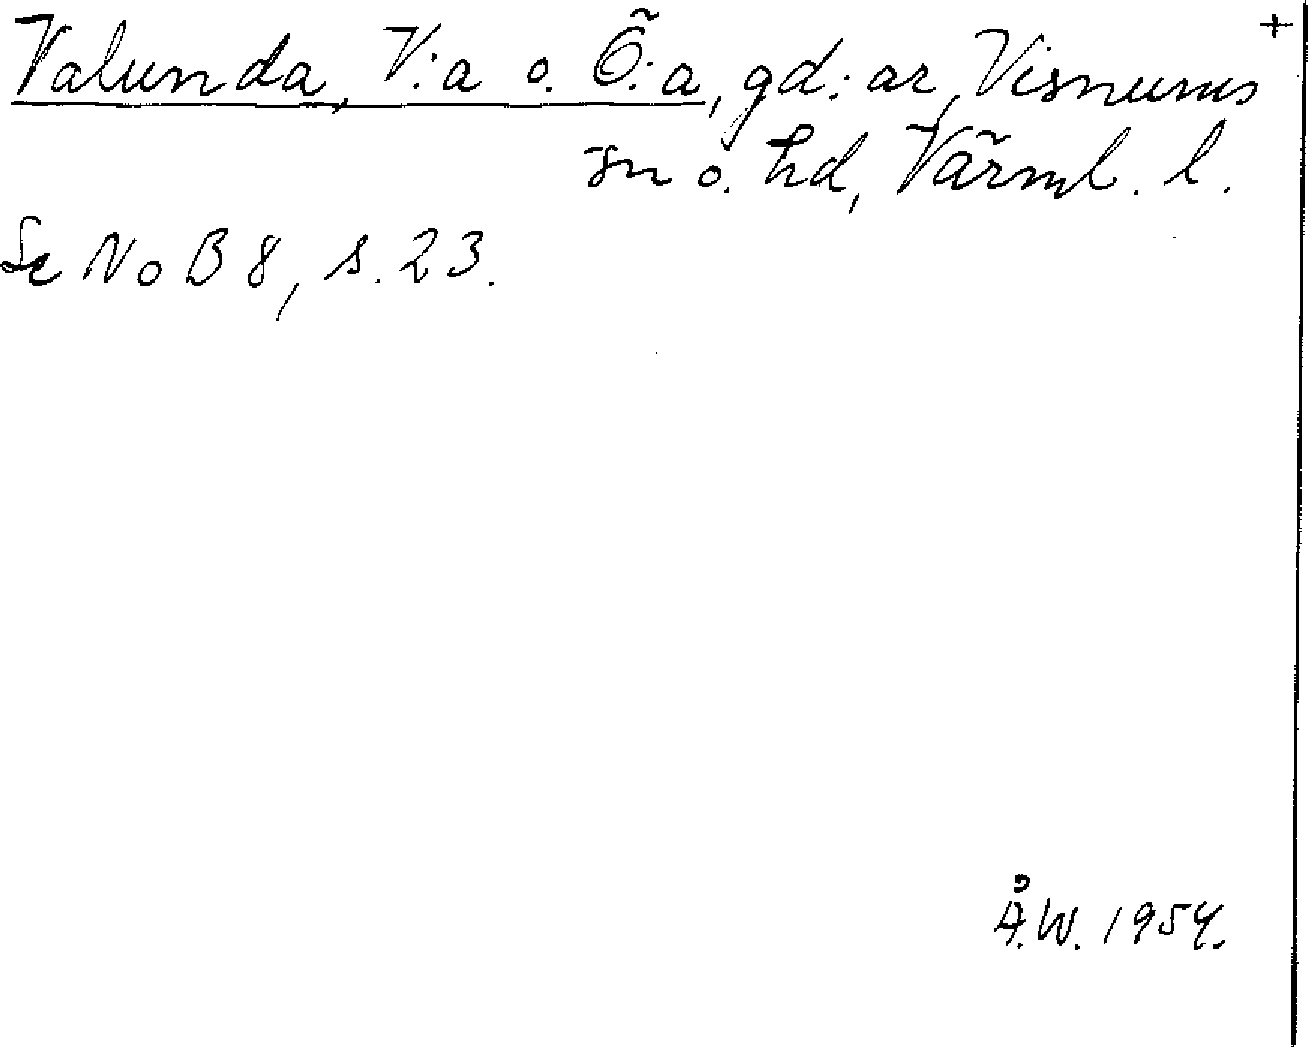 Valunda, V:a o. Ö:a, gd:ar, Visnums +
sn o. hd, Värml. l.
Se NoB 8, s. 23.
Å.W. 1954.